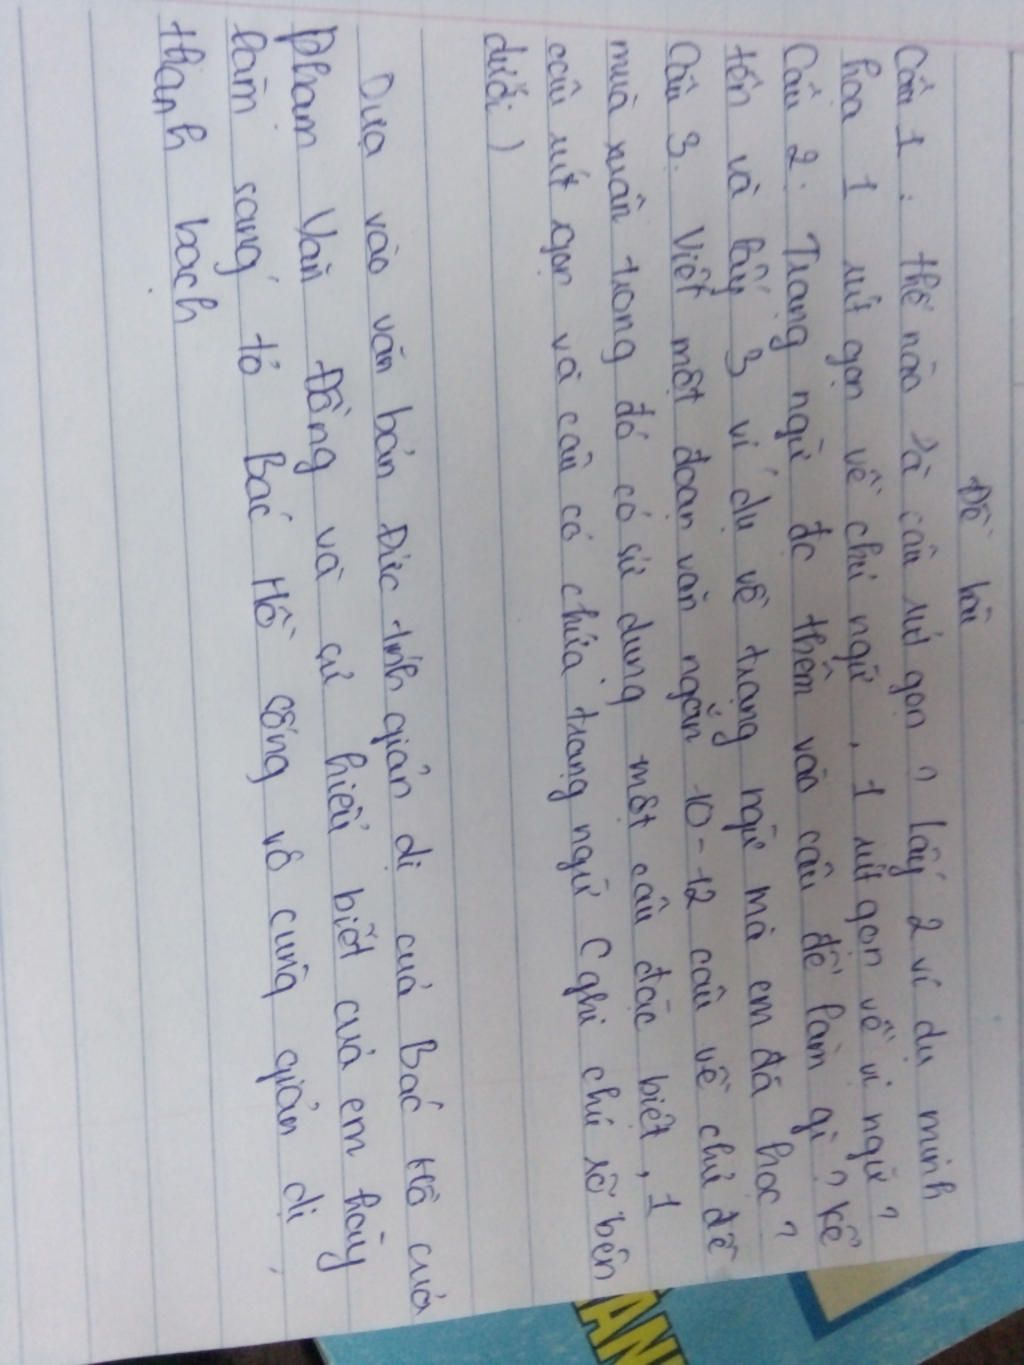 Đề bài
Câu 1 : thế nào là câu rút gọn ? lấy 2 ví dụ minh
hoạ 1 rút gọn về chủ ngữ , 1 rút gọn về vị ngữ ?
Câu 2 . Trạng ngữ đc thêm vào câu để làm gì ? kể
tên và lấy 3 ví dụ về trạng ngữ mà em đã học ?
Câu 3. Viết một đoạn văn ngắn 10-12 câu về chủ đề
mùa xuân trong đó có sử dụng một câu đặc biệt , 1
câu rút gọn và câu có chứa trạng ngữ ( ghi chú rõ bên
dưới )
Dựa vào văn bản Đức tính giản dị của Bác Hồ của
Phạm Văn Đồng và sự hiểu biết của em hãy
làm sáng tỏ Bác Hồ sống vô cùng giản dị ,
thanh bạch
ANI